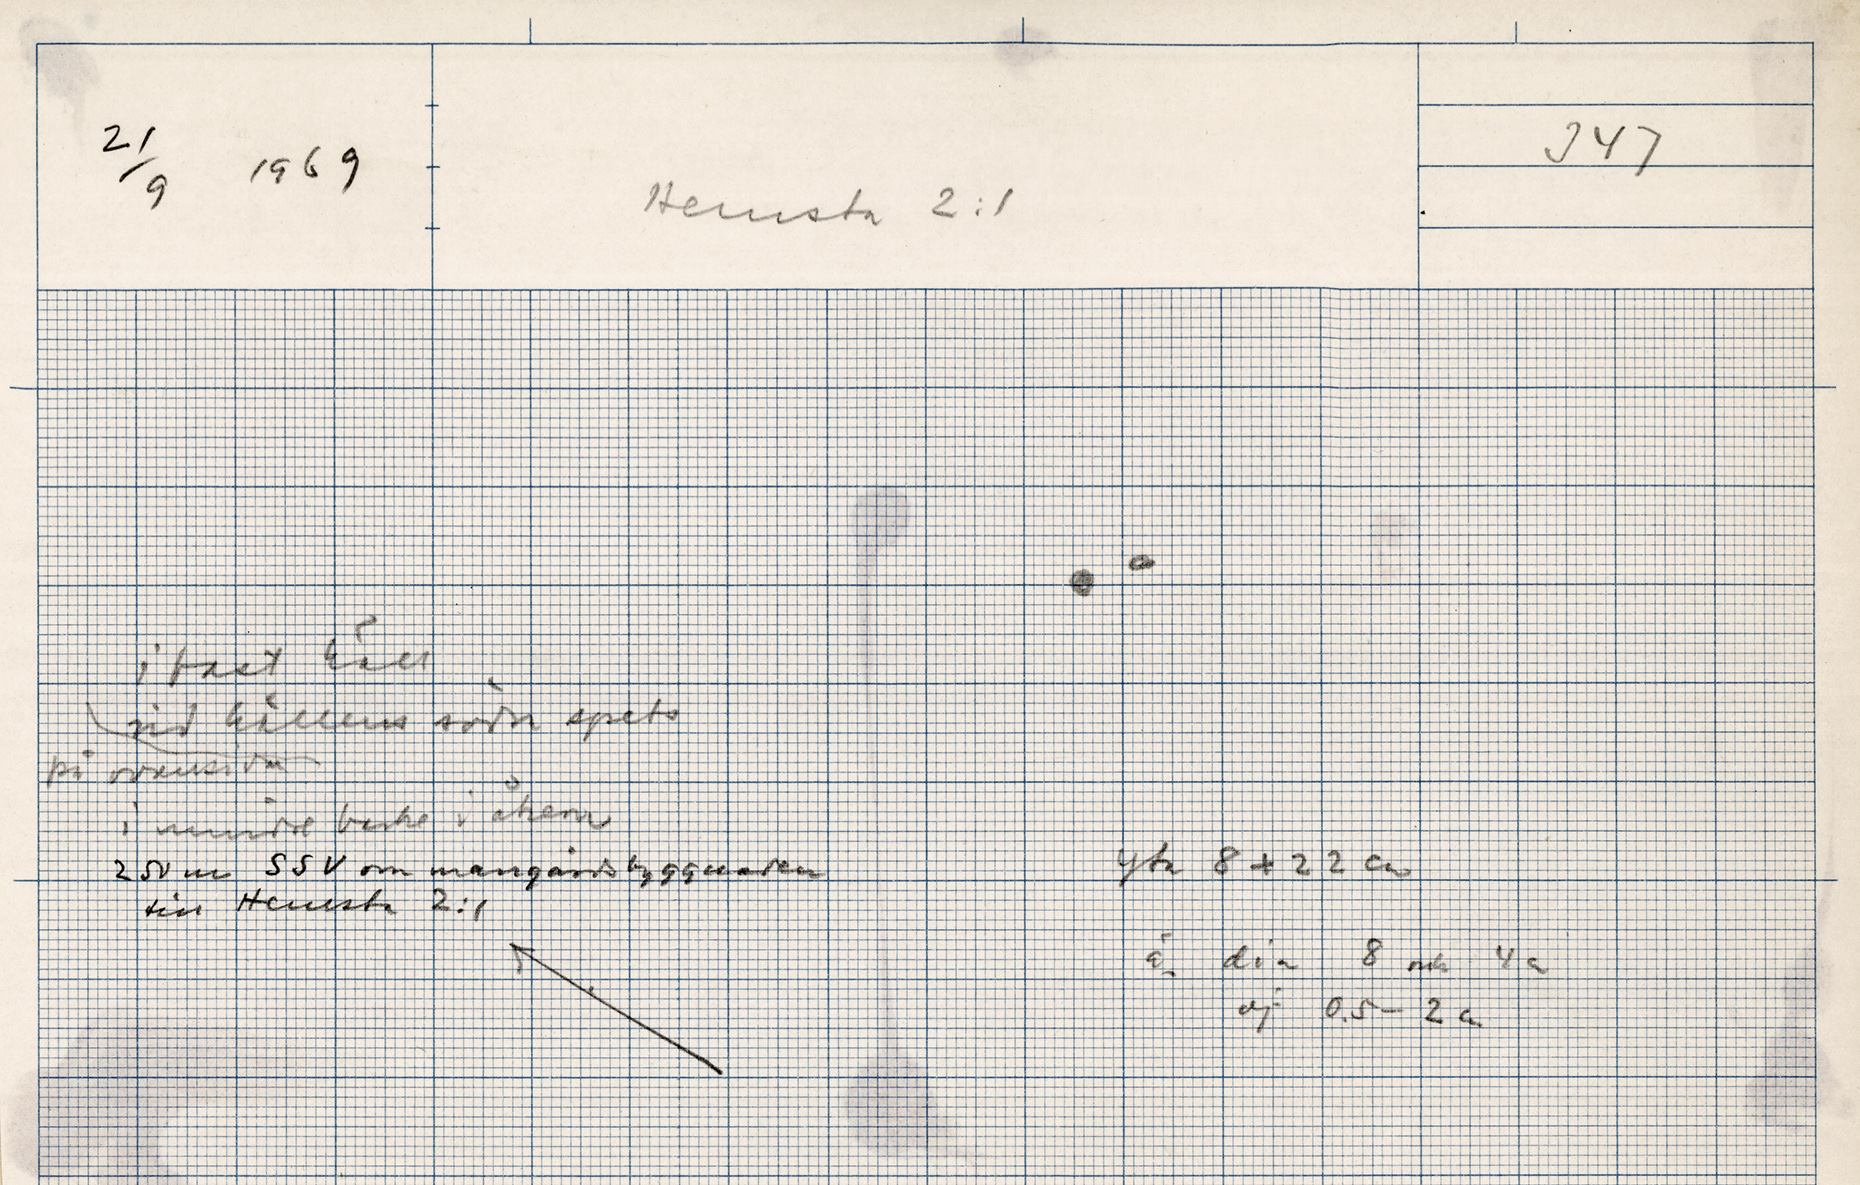 21/9 1969
Hemsta 2:1
J47
i fast häll
vid hällens södra spets
på ovansidan
i mindre backe i åkern
250 m SSV om mangårdsbyggnaden
till Hemsta 2:1
Yta 8 x 22 cm
dia 8 och 4 cm
dj 0.5 - 2 cm